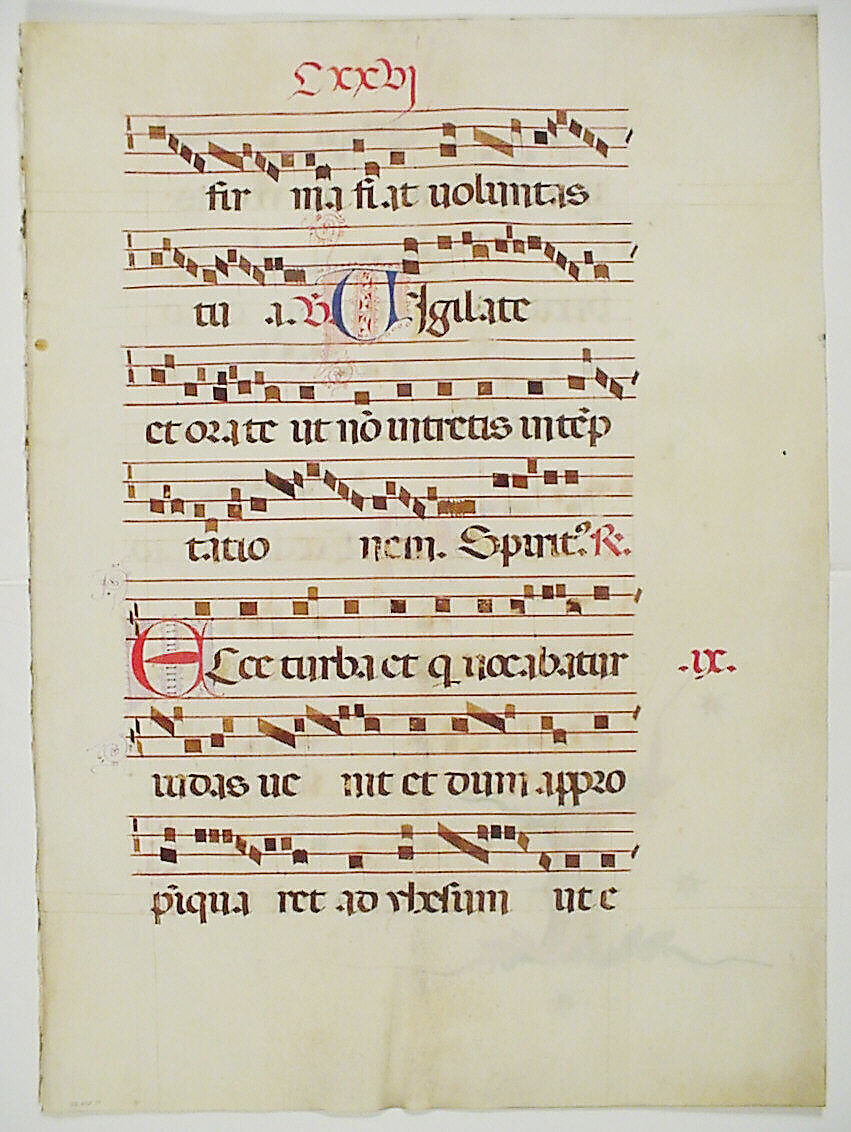 Cxxvj
fir ma fi at uoluntas
tu a. V. Vigilate
et orate ut nō intretis in tēp
tatio nem. Spirit⁹. R.
Ecce turba et q uocabatur .ix.
iudas ue nit et dum appro
p̄iqua ret ad yhesum ut e